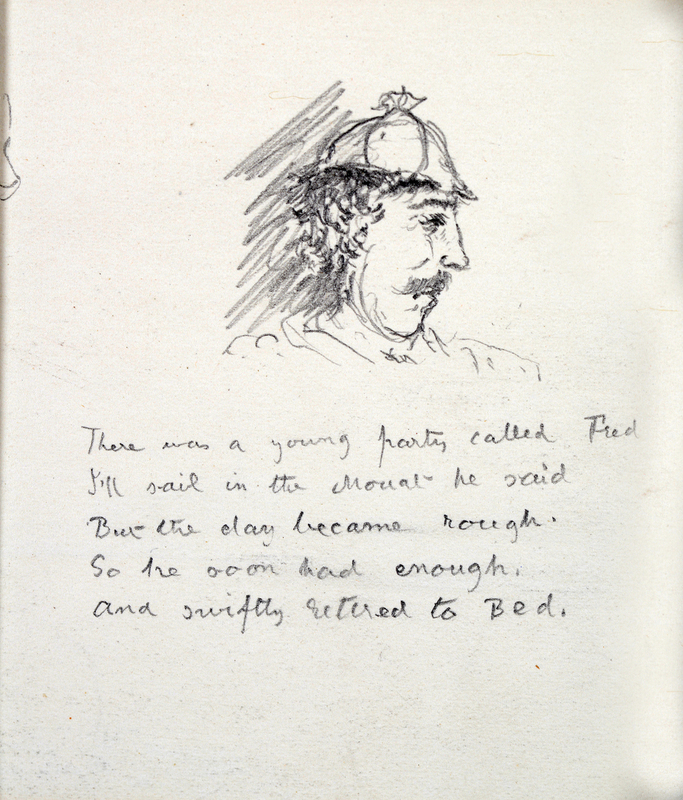 There was a young party called Fred
I'll sail in the Mouat he said
But the day became rough.
So he soon had enough.
And swiftly retired to Bed.